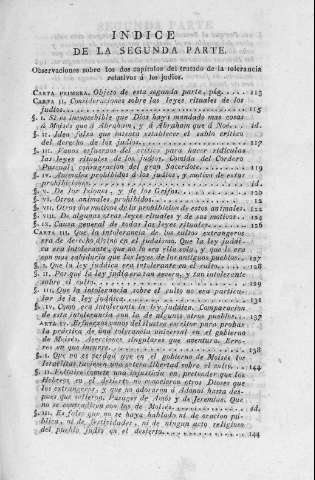 INDICE
DE LA SEGUNDA PARTE.
Observaciones sobre los dos capítulos del tratado de la tolerancia
relativos á los judíos. 113
CARTA PRIMERA. Objeto de esta segunda parte, pág.
CARTA II. Consideraciones sobre las leyes rituales de los
judíos. 115
§. I. Si es inconcebible que Dios haya mandado mas cosas
á Moisés que á Abraham, y á Abraham que á Noé. id.
§. II. Idea falsa que intenta establecer el sabio crítico
del derecho de los judíos. 117
§. III. Vanos esfuerzos del crítico para hacer ridículas
las leyes rituales de los judíos. Comida del Cordero
Pascual; consagracion del gran Sacerdote. 119
§. IV. Animales prohibidos á los judíos, y motivo de estas
prohibiciones. id.
§. V. De los Ixiones, y de los Grifos. 120
§. VI. Otros animales prohibidos. 12
§. VII. Otros motivos de la prohibicion de estos animales. 12
§. VIII. De algunas otras leyes rituales y de sus motivos. 124
§. IX. Causa general de todas las leyes rituales. 126
CARTA III. Que la intolerancia de los cultos extrangeros
era de derecho divino en el judaismo. Que la ley judáica
era intolerante, que no lo era ella sola, y que lo era
con mas sabiduría que las leyes de los antiguos pueblos. 127
§. I. Que la ley judáica era intolerante en el culto. 128
§. II. Por qué la ley judáica era tan severa, y tan intolerante
sobre el culto. 129
§. III. Que la intolerancia sobre el culto no era particular
de la ley judáica. 131
§. IV. Como era intolerante la ley judáica. Comparacion
de esta intolerancia con la de algunos otros pueblos. 137
CARTA IV. Esfuerzos vanos del ilustre escritor para probar
la práctica de una tolerancia universal en el gobierno
de Moisés. Aserciones singulares que aventura. Errores
en que incurre. 138
§. I. Que no es verdad que en el gobierno de Moisés los
Israelitas tuviesen una entera libertad sobre el culto. 144
§. II.
Hebreos en el desierto no conocieron otros Dioses que
los extrangeros, y que no adoraron á Adonai hasta despues
que salieron. Pasages de Amós y de Jeremías. Que
no se contradicen con los de Moisés. id.
§. III. Es falso que no se haya hablado ni de oracion pública,
ni de festividades, ni de ningun acto religioso
del pueblo judío en el desierto. 144